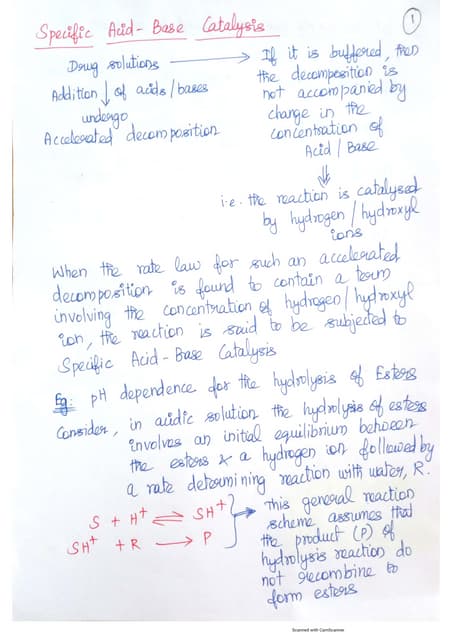 Specific Acid-Base Catalysis
1
Drug solutions
Addition of acids/bases
undergo
Accelerated decomposition
If it is buffered, then
the decomposition is
not accompanied by
change in the
concentration of
Acid/Base
i.e. the reaction is catalysed
by hydrogen/hydroxyl
ions
When the rate law for such an accelerated
decomposition is found to contain a term
involving the concentration of hydrogen/hydroxyl
ion, the reaction is said to be subjected to
Specific Acid-Base Catalysis
Eg: pH dependence for the hydrolysis of Esters
Consider, in acidic solution the hydrolysis of esters
involves an initial equilibrium between
the esters & a hydrogen ion followed by
a rate determining reaction with water, R.
S + H+ ⇌ SH+
SH+ + R → P
This general reaction
scheme assumes that
the product (P) of
hydrolysis reaction do
not recombine to
form esters
Scanned with CamScanner